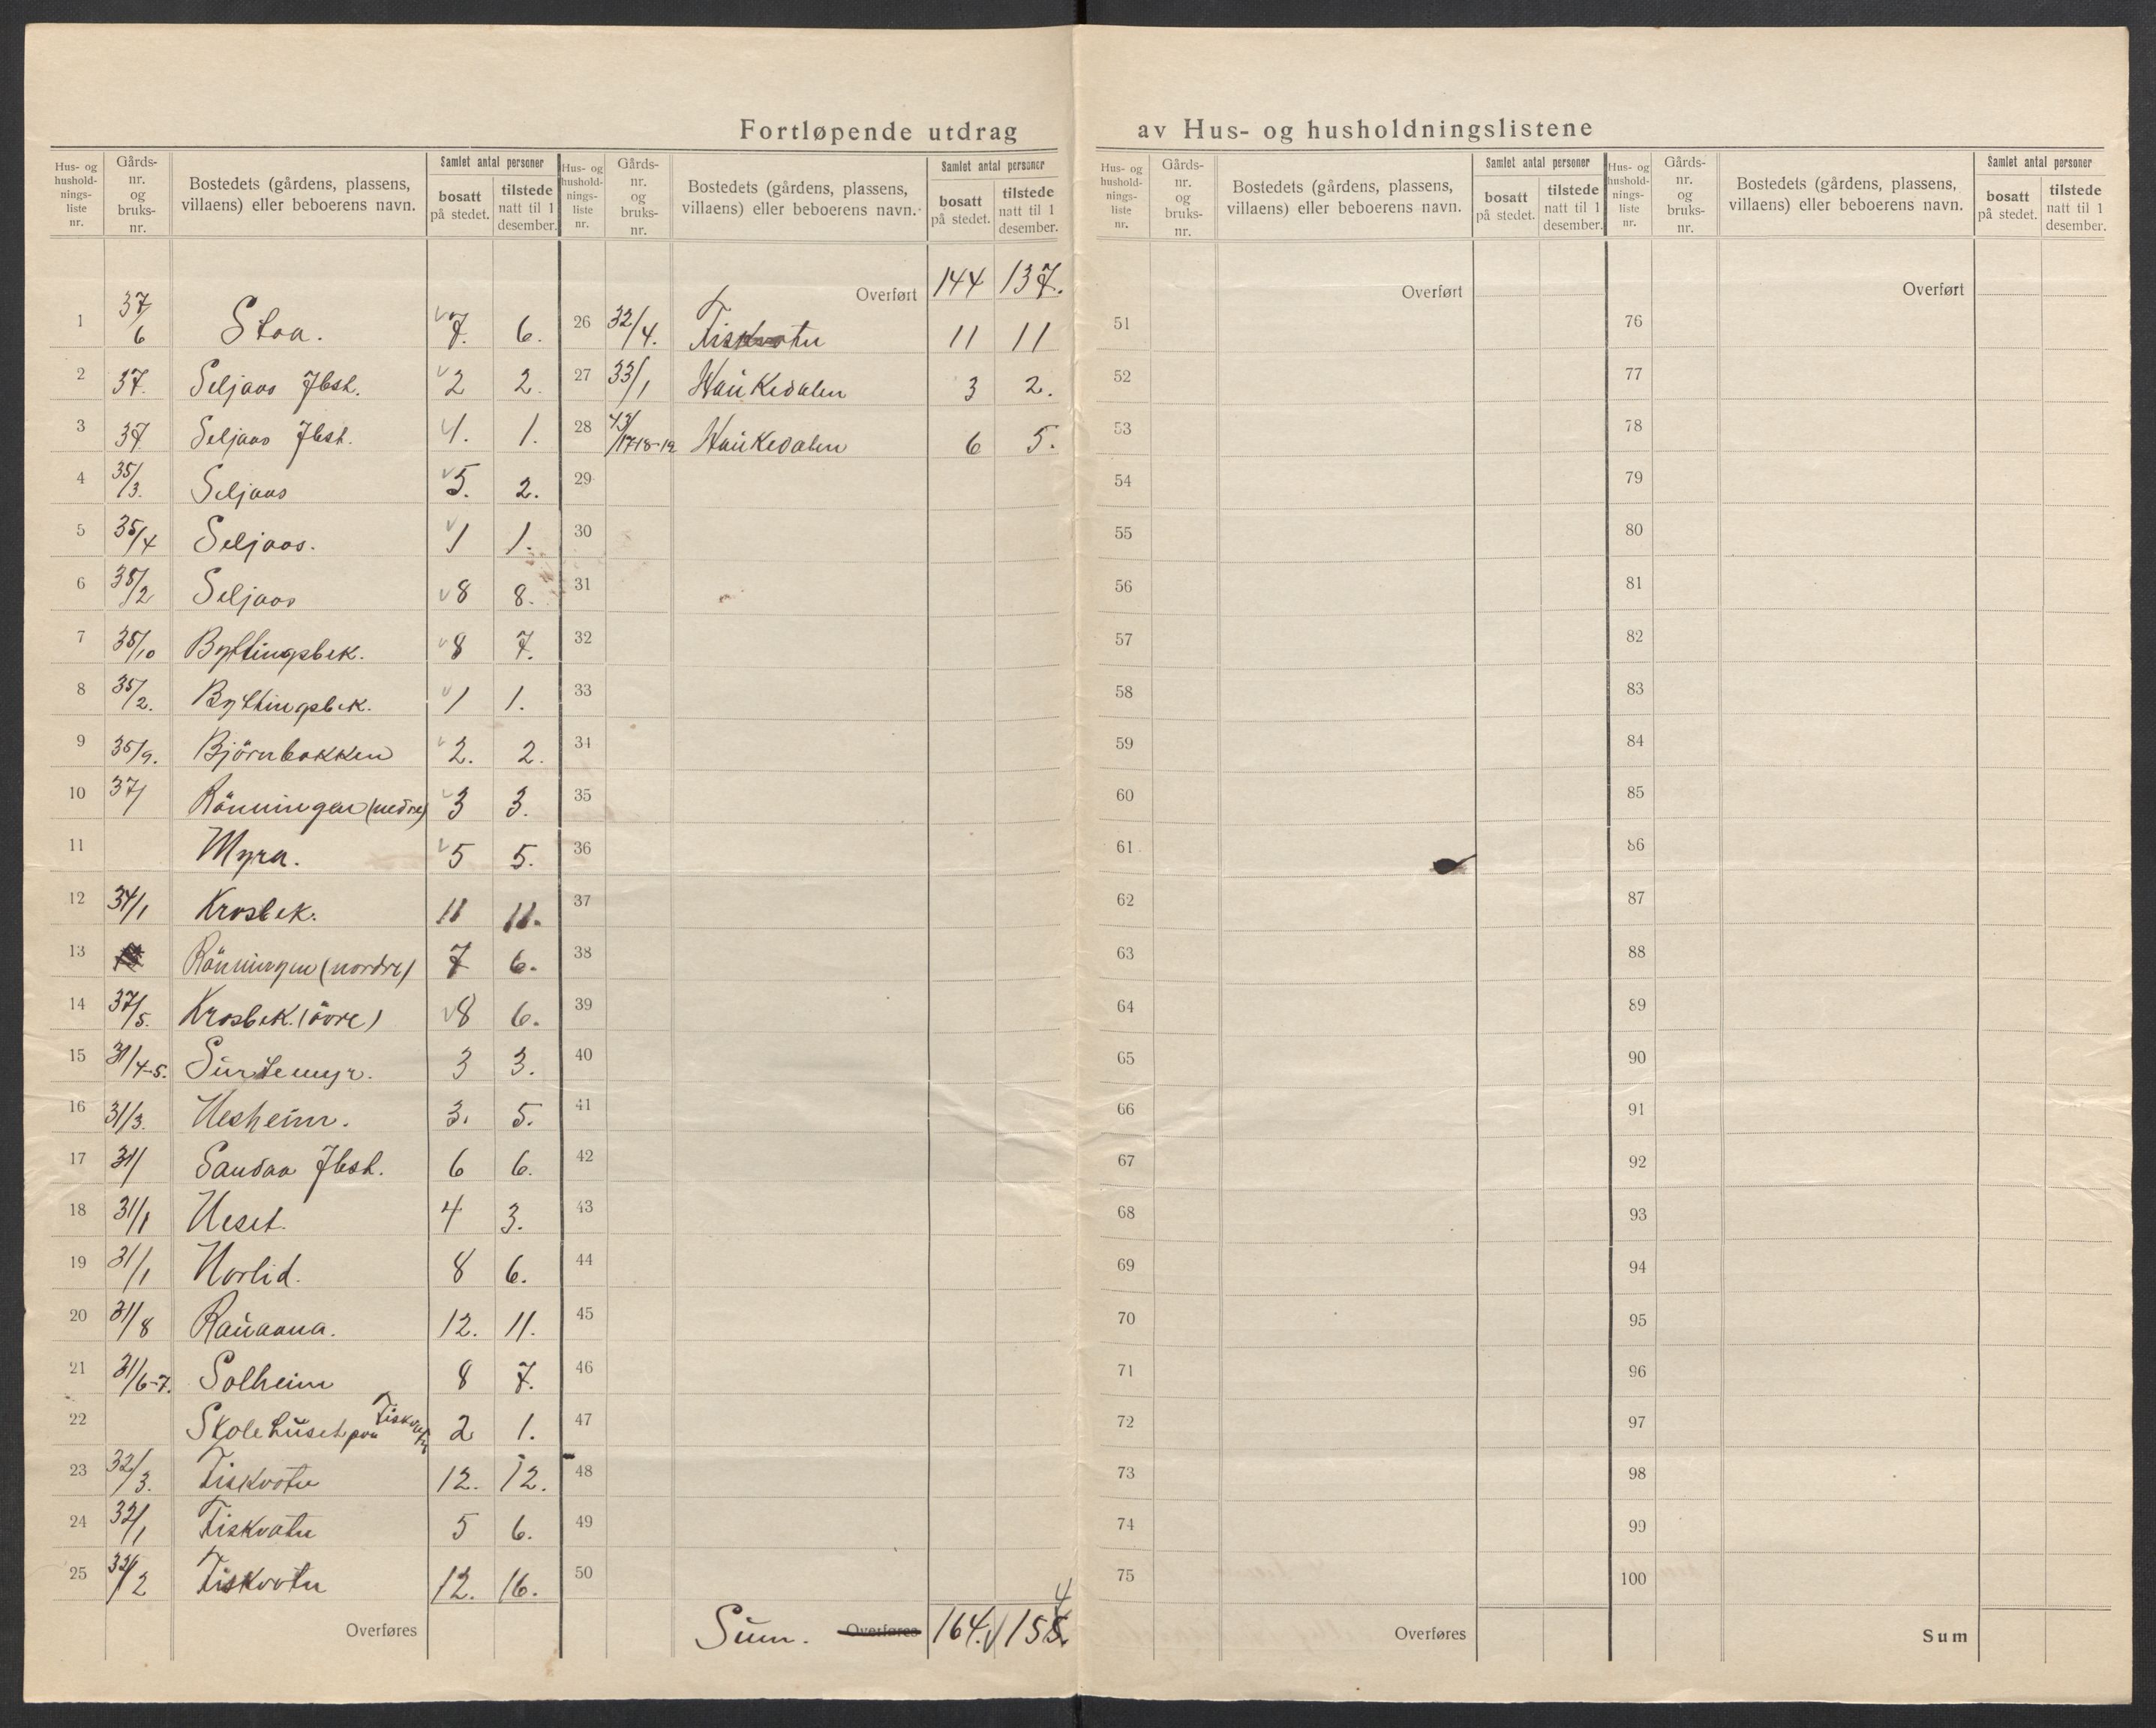 Fortløpende utdrag av Hus- og husholdningslistene
Hus- og hushold-nings-liste nr. | Gårds-nr. og bruks-nr. | Bostedets (gårdens, plassens, villaens) eller beboerens navn. | Samlet antal personer | bosatt på stedet. | tilstede natt til 1 desember.
1 37/6 Stoa. 7. 6.
2 37. Seljaas Jbst. 2 2.
3 37. Seljaas Jbst. 4. 1.
4 35/3. Seljaas 5. 2.
5 35/4 Seljaas. 1 1.
6 35/2 Seljaas 8 8.
7 35/10 Byttingsbek. 8 7.
8 35/2. Byttingsbek. 1 1.
9 35/9. Björnbakken 2. 2.
10 37/ Rönningen (nedre) 3 3.
11 Myra. 5 5.
12 34/1 Krosbek. 11 11.
13 Rönningen (nordre) 7 6.
14 37/5. Krosbek. (övre) 8 6.
15 31/4-5. Surtemyr. 3 3.
16 31/3. Nesheim. 3. 5.
17 31/ Sandaa Jbst. 6 6.
18 31/1 Neset. 4 3.
19 31/1 Norlid. 8 6.
20 31/8 Rauaana. 12. 11.
21 31/6-7. Solheim 8 7.
22 Skolehuset paa Fiskvatn 2 1.
23 32/3. Fiskvatn 12. 12.
24 32/1 Fiskvatn 5 6.
25 32/2 Fiskvatn 12. 16.
Overføres
Hus- og hushold-nings-liste nr. | Gårds-nr. og bruks-nr. | Bostedets (gårdens, plassens, villaens) eller beboerens navn. | Samlet antal personer | bosatt på stedet. | tilstede natt til 1 desember.
Overført 144 137.
26 32/4. Fiskvatn 11 11
27 33/1 Haukedalen 3 2.
28 43/17-18-19 Haukedalen 6 5.
29
30
31
32
33
34
35
36
37
38
39
40
41
42
43
44
45
46
47
48
49
50
Sum. Overføres 164. 155. 4
Hus- og hushold-nings-liste nr. | Gårds-nr. og bruks-nr. | Bostedets (gårdens, plassens, villaens) eller beboerens navn. | Samlet antal personer | bosatt på stedet. | tilstede natt til 1 desember.
Overført
51
52
53
54
55
56
57
58
59
60
61
62
63
64
65
66
67
68
69
70
71
72
73
74
75
Overføres
Hus- og hushold-nings-liste nr. | Gårds-nr. og bruks-nr. | Bostedets (gårdens, plassens, villaens) eller beboerens navn. | Samlet antal personer | bosatt på stedet. | tilstede natt til 1 desember.
Overført
76
77
78
79
80
81
82
83
84
85
86
87
88
89
90
91
92
93
94
95
96
97
98
99
100
Sum